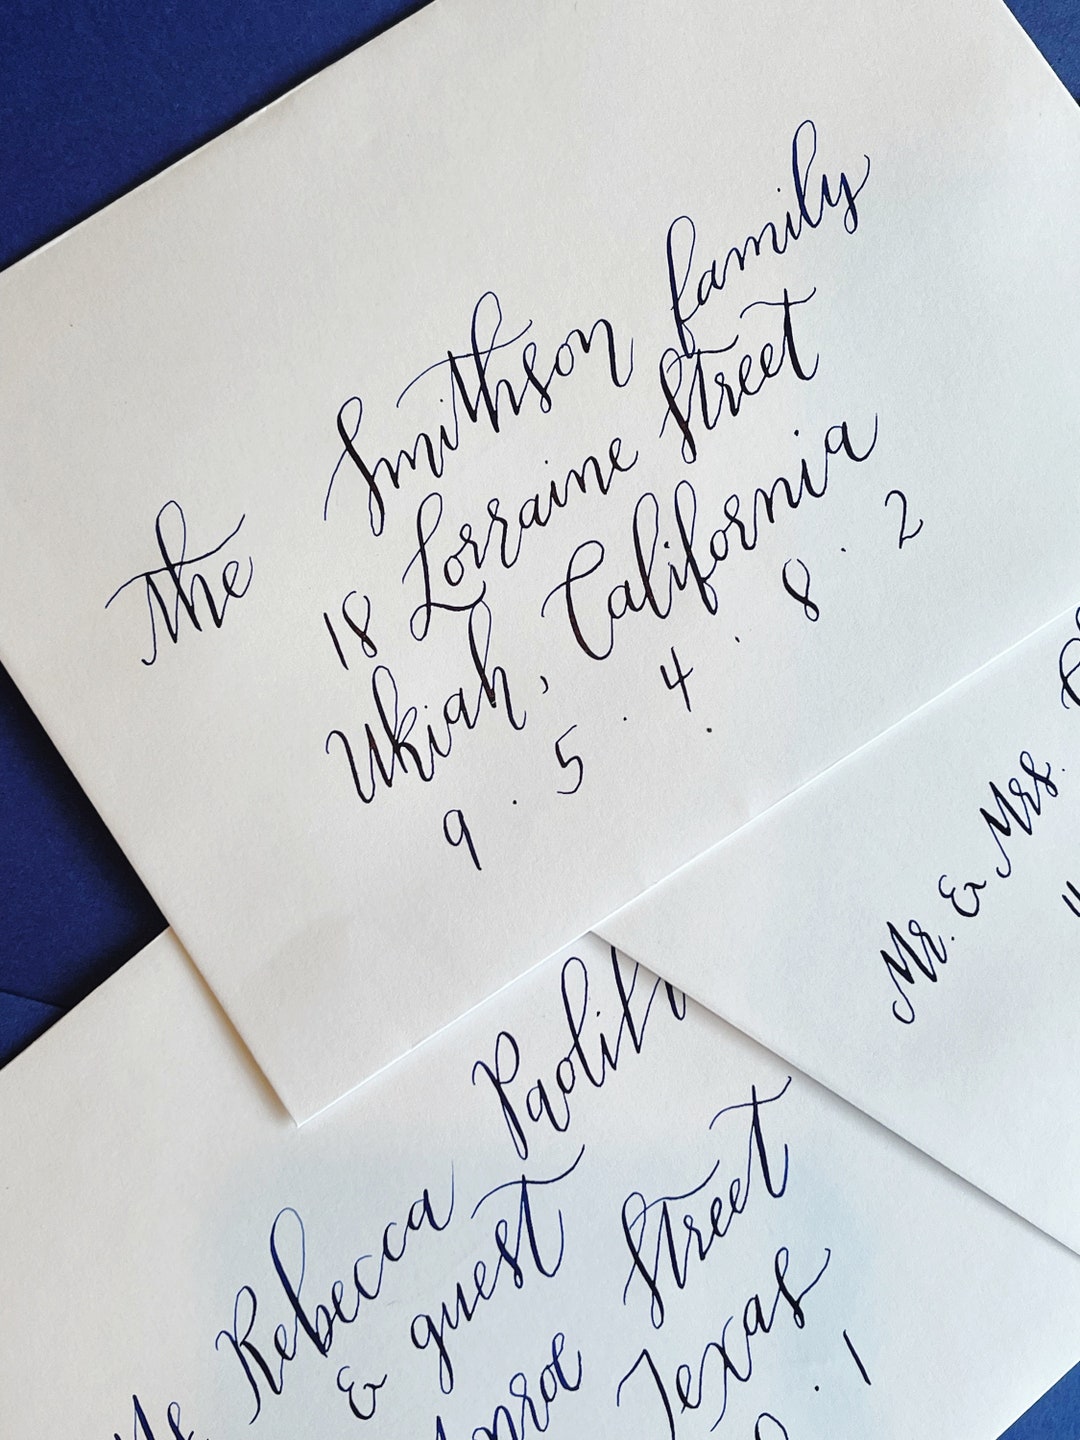 The Smithson family
18 Lorraine Street
Ukiah, California
9 . 5 . 4 . 8 . 2
Mr. & Mrs.
Rebecca
& guest
Street
Texas
. 1